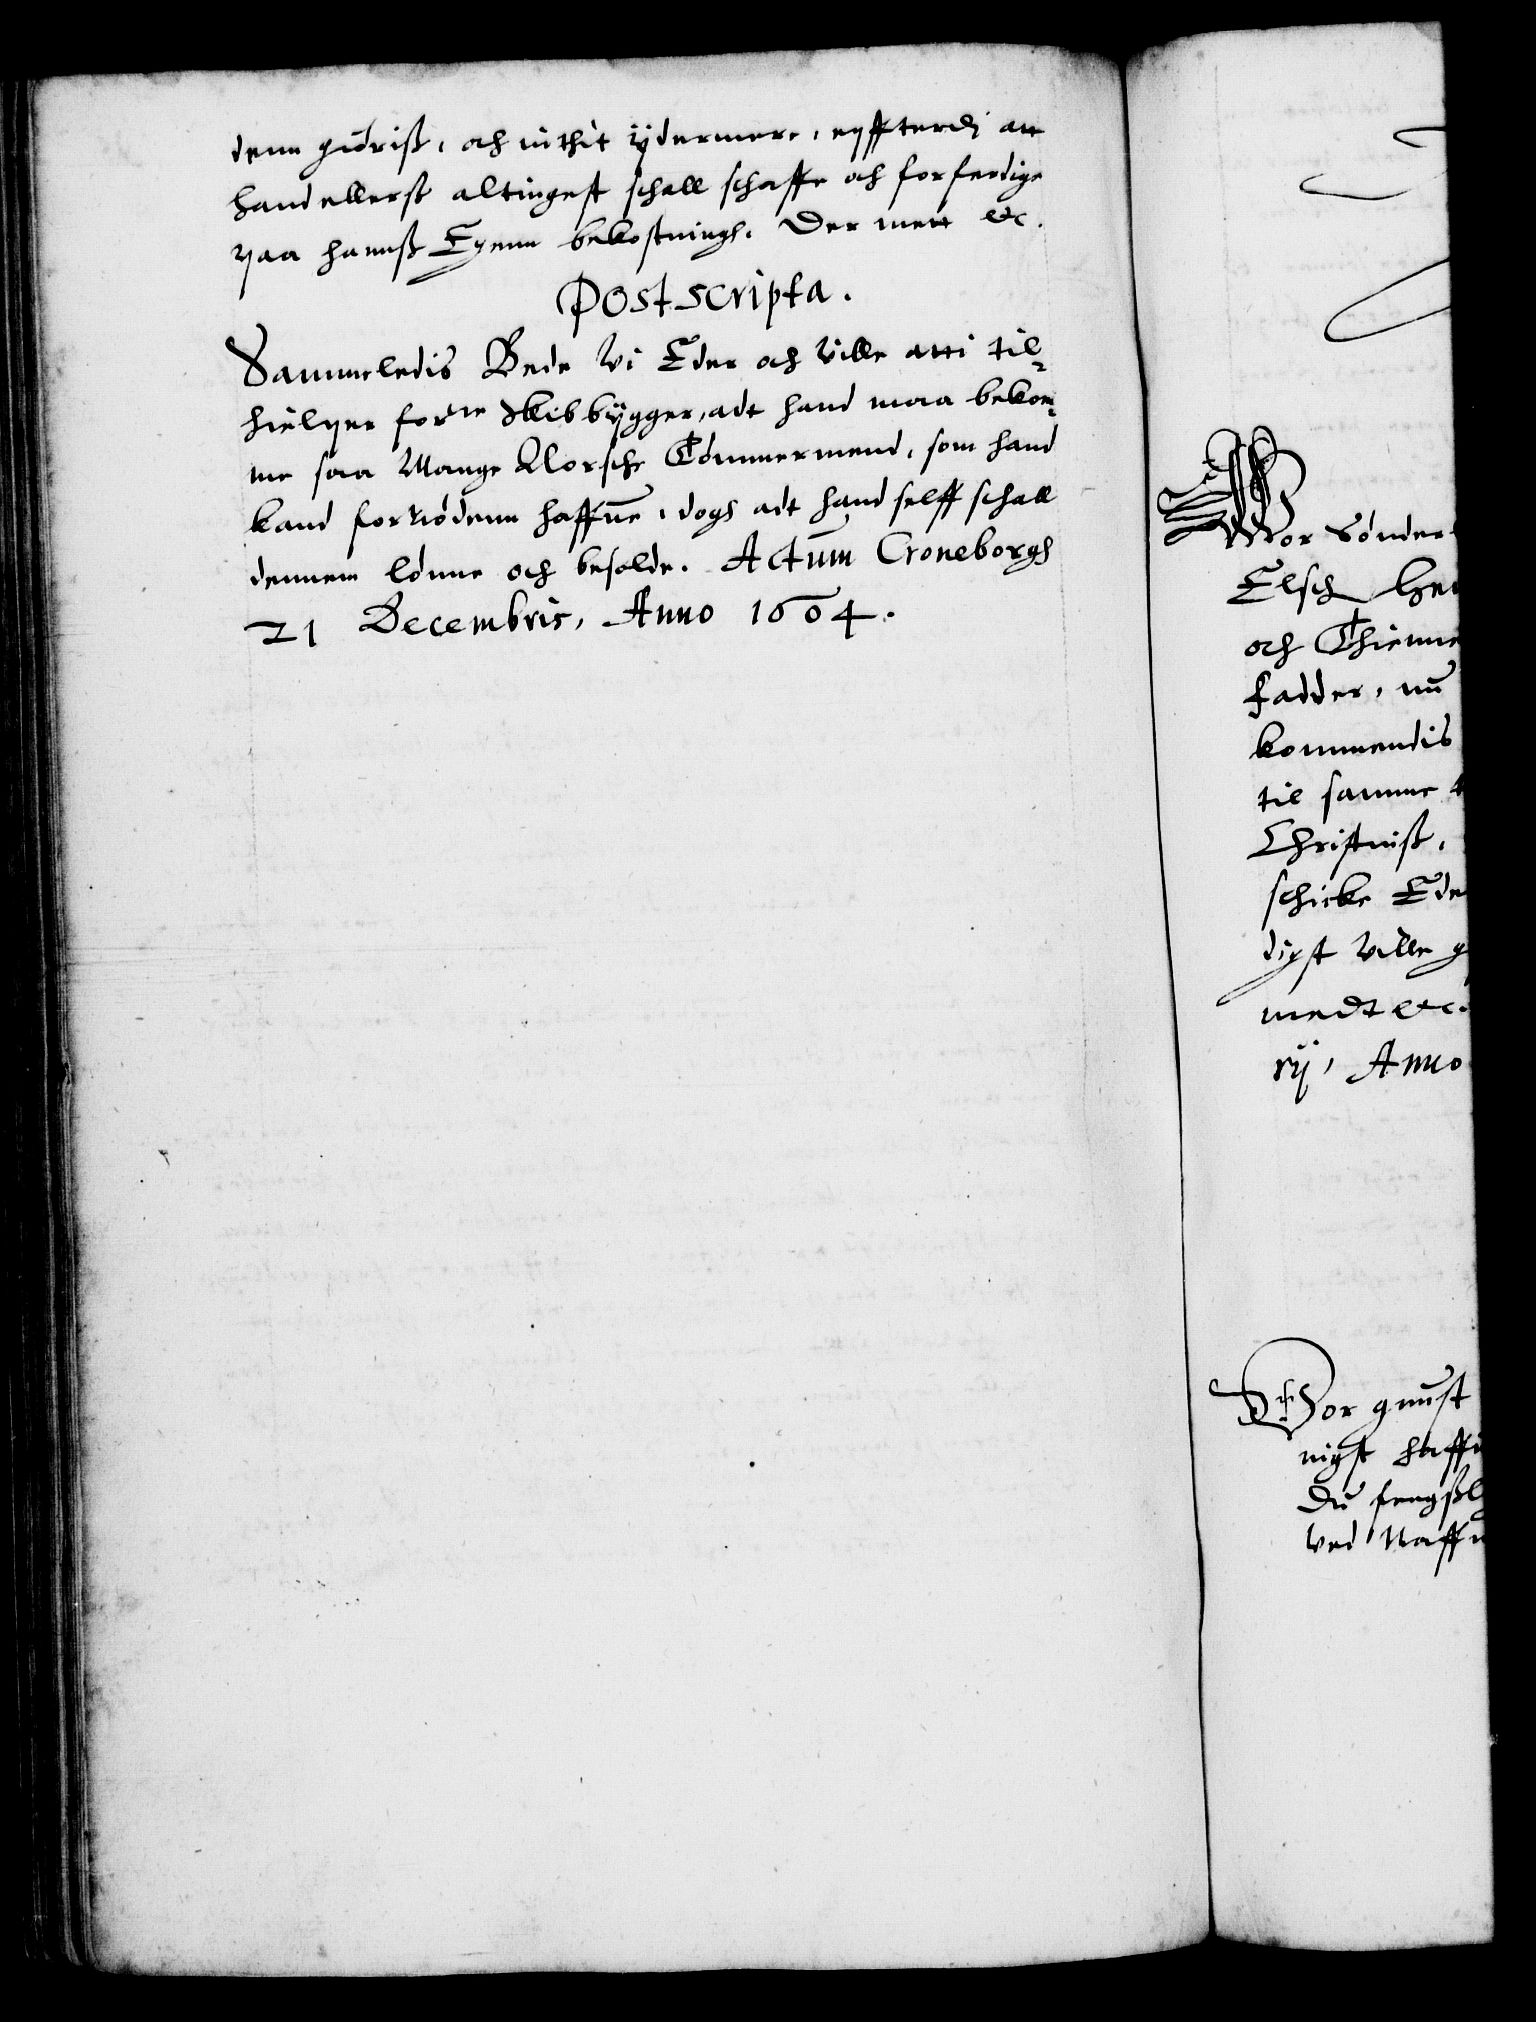 denn giöris, och inthit ÿdermere, epffterdj att
hand ellerst altingest schall schaffe och forferdige
paa hanß Egenn bekostningh. Der mett etc.
Postscripta.
Sammeledis Bede Vi Eder och ville atti til-
hielper forne Skibbÿgger, adt hand maa bekom-
me saa Mange Norsche Tömmermend, som hand
kand fornödenn haffue, dogh adt hand selff schall
dennem lönne och besolde. Actum Croneborgh
21 Decembris, Anno 1604.
Vor Sönder
Elsch
och Thienne
fadder, nu
kommendis
til samme
Christniß,
schicke Ede
digst ville g
medt etc.
rij, Anno
Vor gunst
nigst haffu
Du
ved Naffn